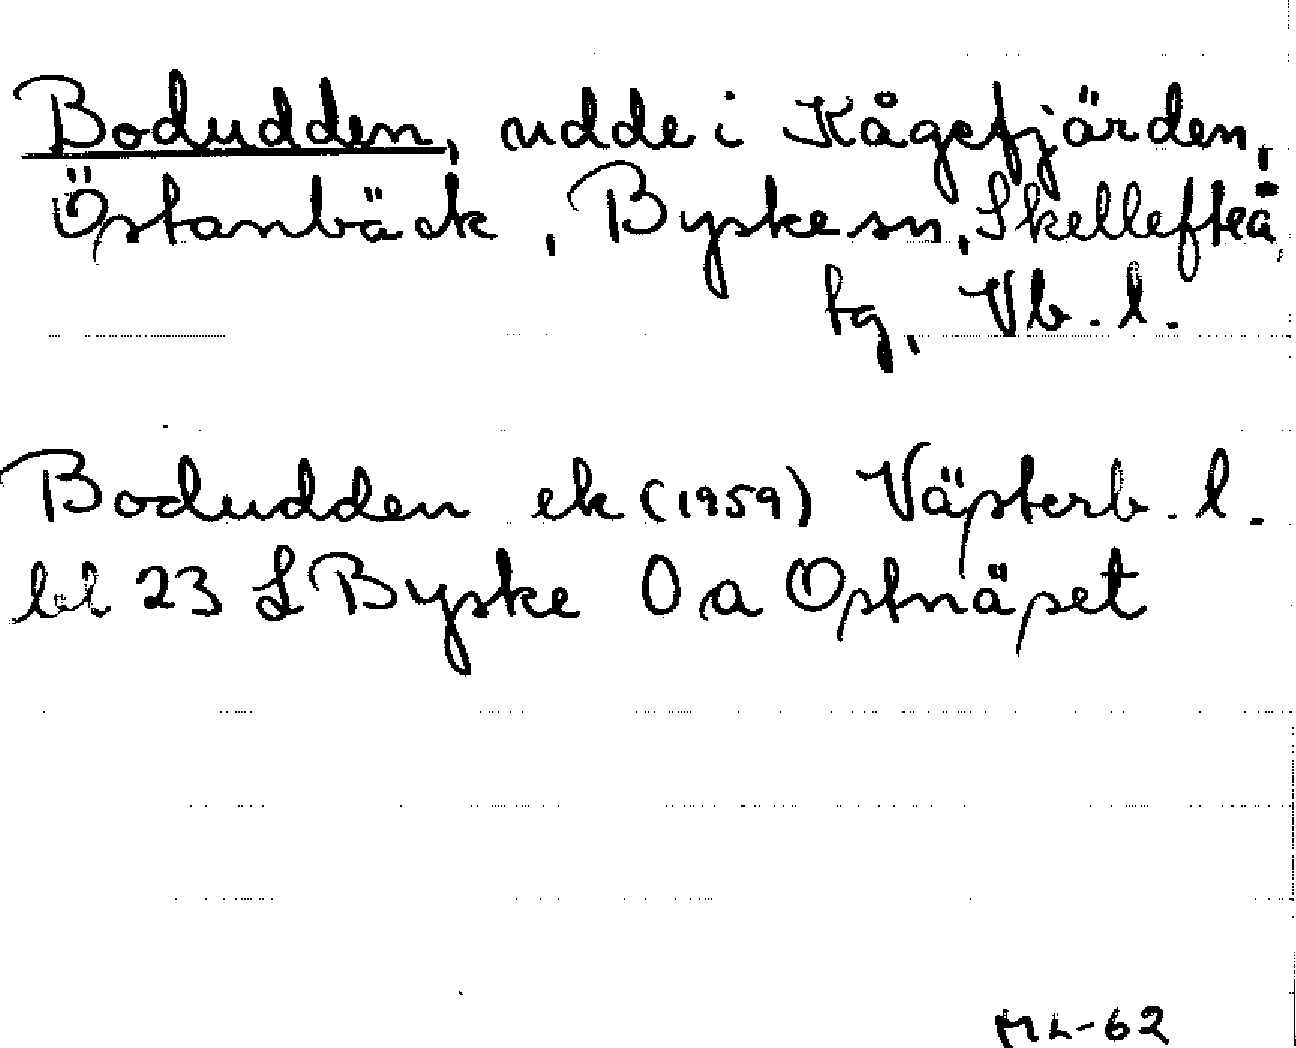 Bodudden, udde i Kågefjärden,
Östanbäck, Byske sn, Skellefteå
tg, Vb. l.
Bodudden ek (1959) Västerb. l.
bl 23 L Byske 0 a Ostnäset
ML-62